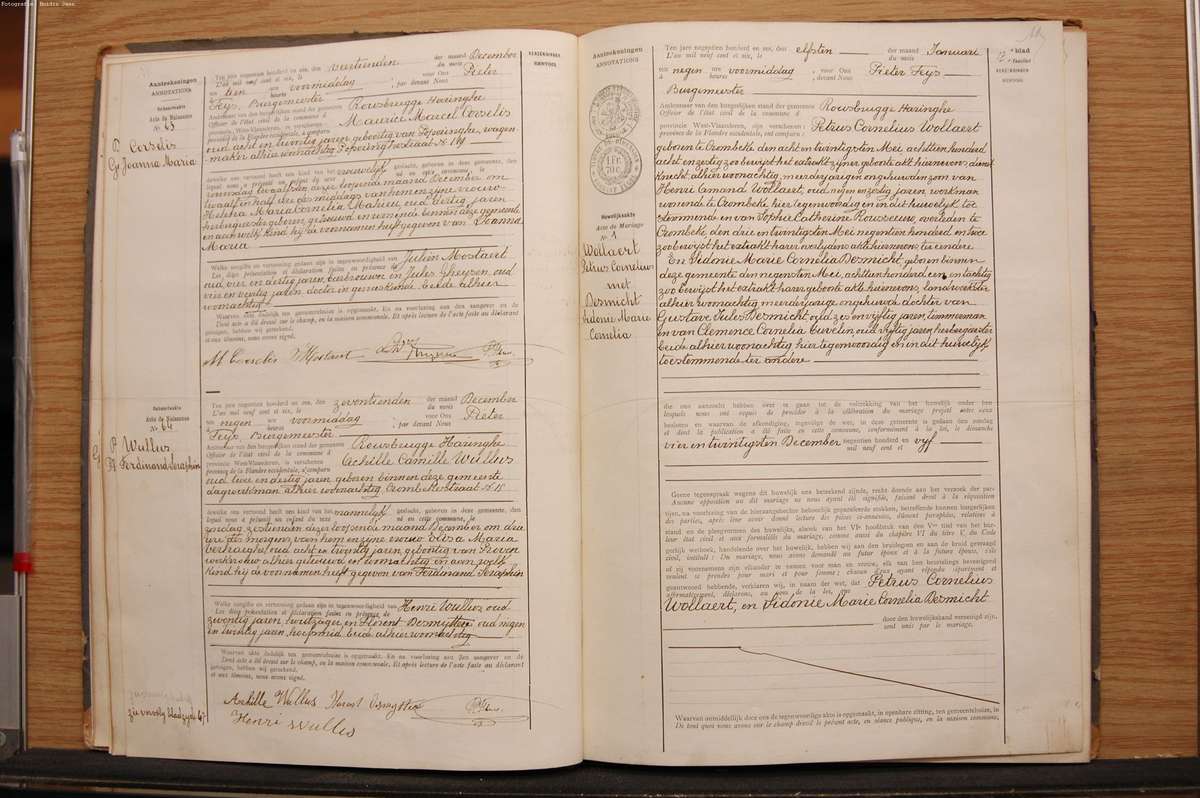 Fotografie: Buidin Jean
Aanteekeningen
ANNOTATIONS
Geboorteakte
Acte de Naissance
N. 63
Corselis
Joanna Maria
VERZENDINGEN
RENVOIS
Ten jare negentien honderd en zes, den veertienden der maand December
L'an mil neuf cent et six, le du mois
ten tien ure voormiddag voor Ons Pieter
à heures , par devant Nous
Feys, Burgemeester
Ambtenaar van den burgerlijken stand der gemeente Rousbrugge Haringhe
Officier de l'état civil de la commune d
provincie West-Vlaanderen, is verschenen Maurice Marcel Corselis
province de la Flandre occidentale, a comparu
oud acht en twintig jaren geboortig van Poperinghe, wagen-
maker alhier woonachtig Poperinghestraat N. 119
dewelke ons heeft een kind van het vrouwelijk geslacht, geboren in deze gemeente, den
lequel nous a présenté un enfant du sexe né en cette commune, le
woensdag twaalfden dezer loopende maand December om
twaalf en half ure des middags van hem en zijne vrouw
Helena Maria Cornelia Mahieu oud dertig jaren
herbergierster geboren, gehuwd en wonende binnen deze gemeente
en aan welk kind hij de voornamen heeft gegeven van Joanna
Maria
Welke aangifte en vertooning gedaan zijn in tegenwoordigheid van Julien Mostaert
Les dites présentation et déclaration faites en présence de
oud vier en dertig jaren, landbouwer en Jules Gheysen, oud
vier en veertig jaren, doctor in geneeskunde, beide alhier
woonachtig
Waarvan akte dadelijk ten gemeentehuize is opgemaakt. En na voorlezing aan den aangever en de
Dont acte a été dressé sur le champ, en la maison communale. Et après lecture de l'acte faite au déclarant
getuigen, hebben wij geteekend.
et aux témoins, nous avons signé.
M Corselis J Mostaert
Geboorteakte
Acte de Naissance
N. 64
Wullus
Ferdinand Seraphin
Ten jare negentien honderd en zes, den zeventienden der maand December
L'an mil neuf cent et six, le du mois
ten negen ure voormiddag voor Ons Pieter
à heures , par devant Nous
Feys, Burgemeester
Ambtenaar van den burgerlijken stand der gemeente Rousbrugge Haringhe
Officier de l'état civil de la commune d
provincie West-Vlaanderen, is verschenen Achille Camille Wullus
province de la Flandre occidentale, a comparu
oud twee en dertig jaren geboren binnen deze gemeente
dagwerkman alhier woonachtig Crombekestraat N. 15
dewelke ons heeft een kind van het mannelijk geslacht, geboren in deze gemeente, den
lequel nous a présenté un enfant du sexe né en cette commune, le
zondag zestienden dezer loopende maand December om drie
ure des morgens van hem en zijne vrouw Elisa Maria
Verhaeghe, oud acht en twintig jaren, geboortig van Proven
werkvrouw alhier gehuwd en woonachtig en aan welk
kind hij de voornamen heeft gegeven van Ferdinand Seraphin
Welke aangifte en vertooning gedaan zijn in tegenwoordigheid van Henri Wullus, oud
Les dites présentation et déclaration faites en présence de
zeventig jaren, en Florent Desmyttere oud negen
en twintig jaren hoefsmid beide alhier woonachtig
Waarvan akte dadelijk ten gemeentehuize is opgemaakt. En na voorlezing aan den aangever en de
Dont acte a été dressé sur le champ, en la maison communale. Et après lecture de l'acte faite au déclarant
getuigen, hebben wij geteekend.
et aux témoins, nous avons signé.
Achille Wullus
Henri Wullus
Aanteekeningen
ANNOTATIONS
1 Fr.
70 c.
Huwelijksakte
Acte de Mariage
N. 1
Wollaert
Petrus Cornelius
met
Desmicht
Sidonie Marie
Cornelia
2e blad
feuillet
VERZENDINGEN
RENVOIS
Ten jare negentien honderd en zes, den elfsten der maand Januari
L'an mil neuf cent et six, le du mois
ten negen ure voormiddag , voor Ons Pieter Feys
à heures , devant Nous
Burgemeester
Ambtenaar van den burgerlijken stand der gemeente Rousbrugge Haringhe
Officier de l'état civil de la commune d
provincie West-Vlaanderen, zijn verschenen: Petrus Cornelius Wollaert
province de la Flandre occidentale, ont comparu:
geboren te Crombeke den acht en twintigsten Mei achttien honderd
acht en zestig zoo bewijst het extrakt zijner geboorte akte hiernevens, dienst
knecht alhier woonachtig, meerderjarigen ongehuwden zoon van
Henri Amand Wollaert, oud negen en zestig jaren werkman
wonende te Crombeke hier tegenwoordig en in dit huwelijk toe
stemmende en van Sophie Catherine Rousseeuw, overleden te
Crombeke, den drie en twintigsten Mei negentien honderd en twee
zoo bewijst het extrakt harer overlydens akte hiernevens, ter eendere.
En Sidonie Marie Cornelia Desmicht, geboren binnen
deze gemeente den negensten Mei, achttien honderd een en tachtig
zoo bewijst het extrakt harer geboorte akte hiernevens, landwerkster
alhier woonachtig, meerderjarige ongehuwde dochter van
Gustave Jules Desmicht oud zes en vyftig jaren, timmerman
en van Clemence Cornelia Cuvelin oud vyftig jaren, herbergierster
beide alhier woonachtig hier tegenwoordig en in dit huwelijk
toestemmende ter andere
die ons aanzocht hebben over te gaan tot de voltrekking van het huwelijk onder hen
lesquels nous ont requis de procéder à la célébration du mariage projeté entre eux
besloten en waarvan de afkondiging, ingevolge de wet, in deze gemeente is gedaan den zondag
et dont la publication a été faite en cette commune, conformément à la loi, le dimanche
vier en twintigsten December negentien honderd en vyf
mil neuf cent et
Geene tegenspraak wegens dit huwelijk ons beteekend zijnde, recht doende aan het verzoek der par-
Aucune opposition au dit mariage ne nous ayant été signifiée, faisant droit à la réquisition
tijen, na voorlezing van de hieraangehechte behoorlijk geparafeerde stukken, betreffende hunnen burgerlijken
des parties, après leur avoir donné lecture des pièces ci-annexées, dûment paraphées, relatives à
stand en de plegtvormen des huwelijks, alsook van het VIe hoofdstuk van den Ven titel van het bur-
leur état civil et aux formalités du mariage, comme aussi du chapitre VI du titre V, du Code
gerlijk wetboek, handelende over het huwelijk, hebben wij aan den bruidegom en aan de bruid gevraagd
civil, intitulé: Du mariage, nous avons demandé au futur époux et à la future épouse, s'ils
of zij voornemens zijn elkander te nemen voor man en vrouw, elk van hen beurtelings bevestigend
veulent se prendre pour mari et pour femme; chacun d'eux ayant répondu séparément et
geantwoord hebbende, verklaren wij, in naam der wet, dat Petrus Cornelius
affirmativement, déclarons, au nom de la loi, que
Wollaert, en Sidonie Marie Cornelia Desmicht
door den huwelijksband vereenigd zijn.
sont unis par le mariage.
Waarvan onmiddellijk door ons de tegenwoordige akte is opgemaakt, in openbare zitting, ten gemeentehuize, in
De tout quoi nous avons sur le champ dressé le présent acte, en séance publique, en la maison commune,